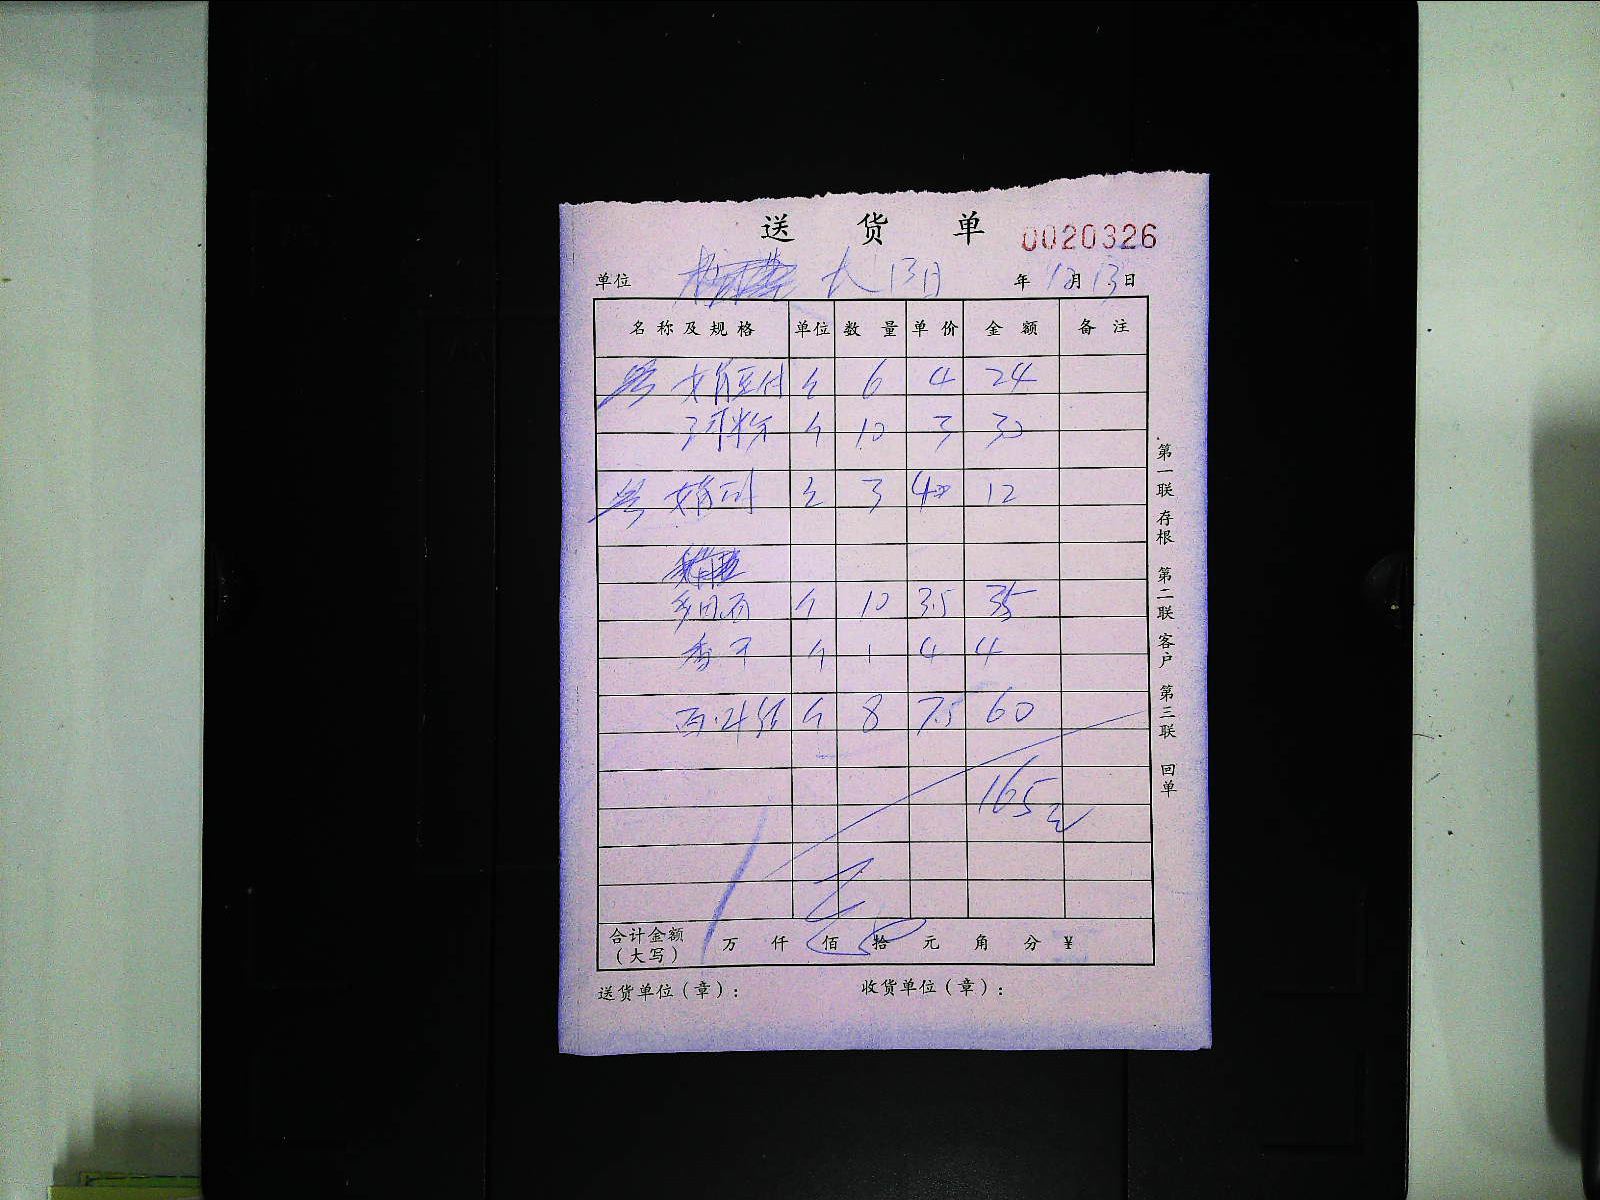 送 货 单 0020326
单位 大 13日 年 12月 13日
名称及规格 单位 数量 单价 金额 备注
6 4 24
河粉 个 10 3 30
3 4 12
个 10 3.5 35
香干 个 1 4 4
个 8 7.5 60
165元
合计金额(大写) 万 仟 佰 拾 元 角 分 ¥
送货单位(章): 收货单位(章):
第一联 存根 第二联 客户 第三联 回单